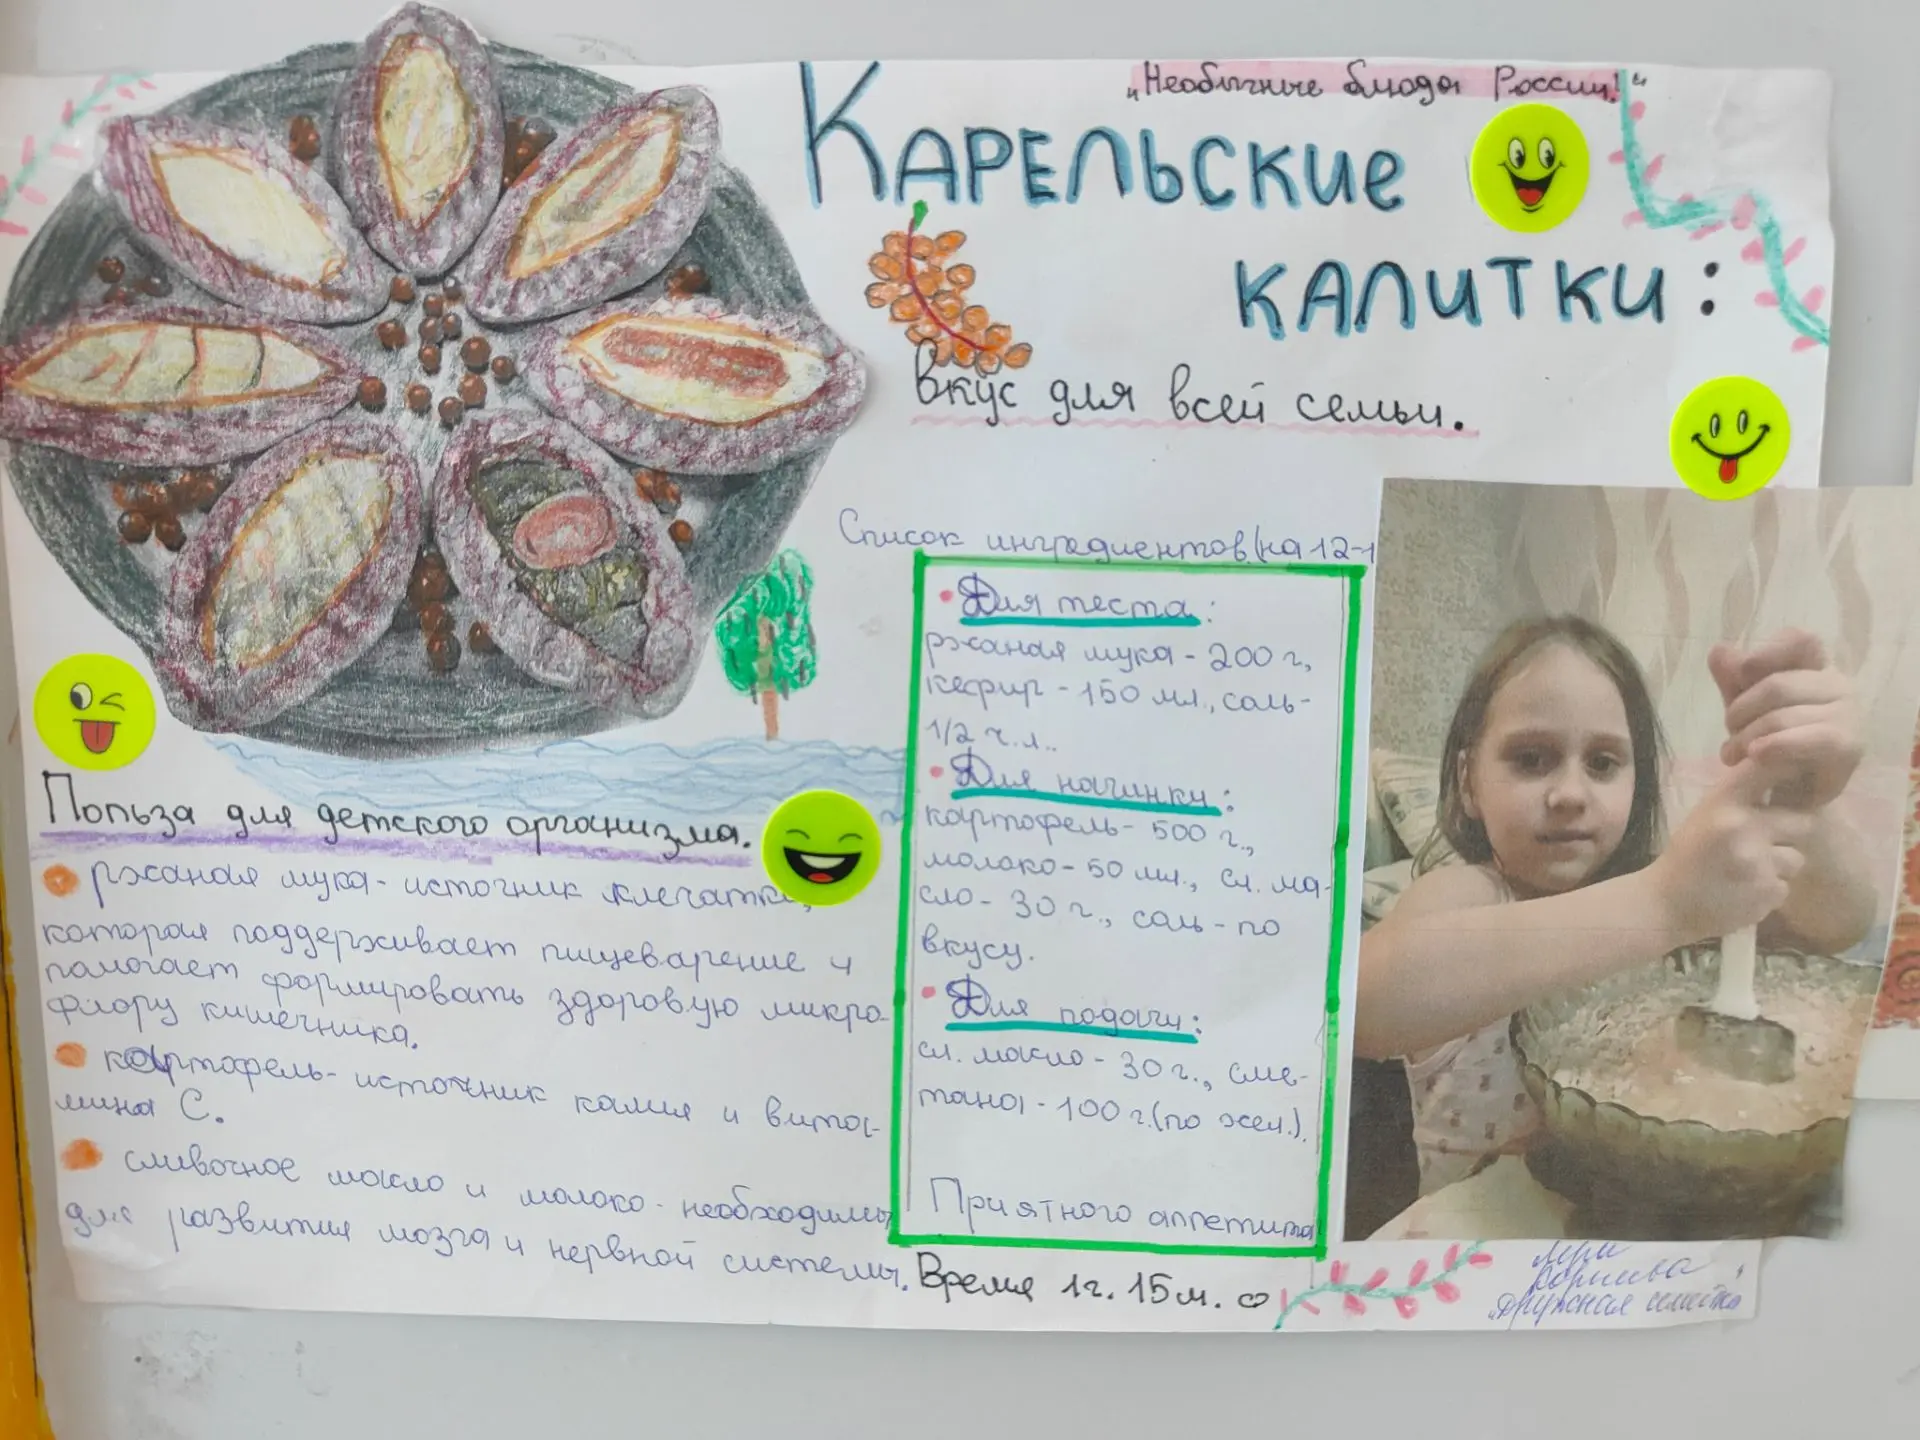 „Необычные блюда России!“
КАРЕЛЬСКИЕ
КАЛИТКИ:
Вкус для всей семьи.
Список ингредиентов (на 12-1
• Для теста:
ржаная мука - 200 г,
кефир - 150 мл., соль-
1/2 ч.л..
• Для начинки:
картофель - 500 г.,
молоко - 50 мл., сл. ма-
сло - 30 г., соль - по
вкусу.
• Для подачи:
сл. масло - 30 г., сме-
тана - 100 г. (по жел.).
Приятного аппетита
Время 1 г. 15 м.
Польза для детского организма.
ржаная мука - источник клетчатки,
которая поддерживает пищеварение и
помогает формировать здоровую микро-
флору кишечника.
картофель - источник калия и вита-
мина С.
сливочное масло и молоко - необходимы
для развития мозга и нервной системы.
дружная семейка